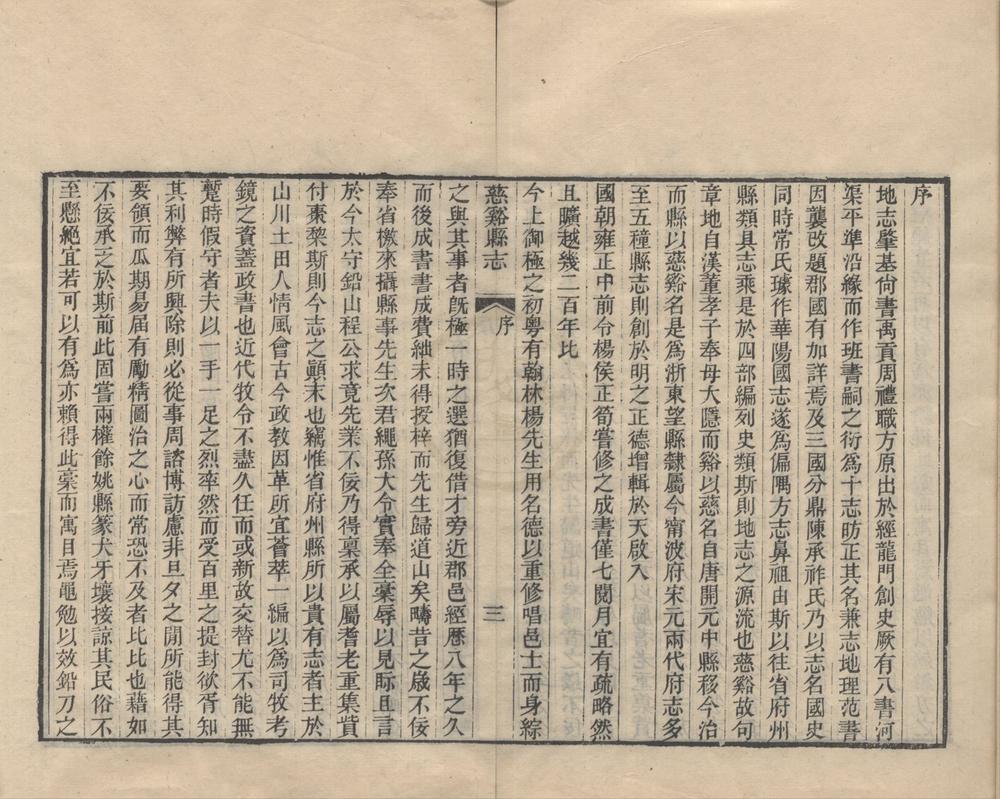 序
地志肇基尙書禹貢周禮職方原出於經龍門創史厥有八書河
渠平準沿緣而作班書嗣之衍爲十志昉正其名兼志地理范書
因襲改題郡國有加詳焉及三國分鼎陳承祚氏乃以志名國史
同時常氏璩作華陽國志遂爲偏隅方志鼻祖由斯以往省府州
縣類具志乘是於四部編列史類斯則地志之源流也慈谿故句
章地自漢董孝子奉母大隱而谿以慈名自唐開元中縣移今治
而縣以慈谿名是爲浙東望縣隸屬今甯波府宋元兩代府志多
至五種縣志則創於明之正德增輯於天啟入
國朝雍正中前令楊侯正筍嘗修之成書僅七閱月宜有疏略然
且曠越幾二百年比
今上御極之初粵有翰林楊先生用名德以重修唱邑士而身綜
慈谿縣志
序
三
之與其事者旣極一時之選猶復借才旁近郡邑經歷八年之久
而後成書書成費絀未得授梓而先生歸道山矣疇昔之歲不佞
奉省檄來攝縣事先生次君繩孫大令實奉全稾辱以見眎且言
於今太守鉛山程公求竟先業不佞乃得稟承以屬耆老重集貲
付棗棃斯則今志之顚末也竊惟省府州縣所以貴有志者主於
山川土田人情風會古今政教因革所宜薈萃一編以爲司牧考
鏡之資蓋政書也近代牧令不盡久任而或新故交替尤不能無
蹔時假守者夫以一手一足之烈率然而受百里之提封欲胥知
其利弊有所興除則必從事周諮博訪慮非旦夕之閒所能得其
要領而瓜期易届有勵精圖治之心而常恐不及者比比也藉如
不佞承乏於斯前此固嘗兩權餘姚縣篆犬牙壤接諒其民俗不
至懸絕宜若可以有爲亦賴得此稾而寓目焉黽勉以效鉛刀之